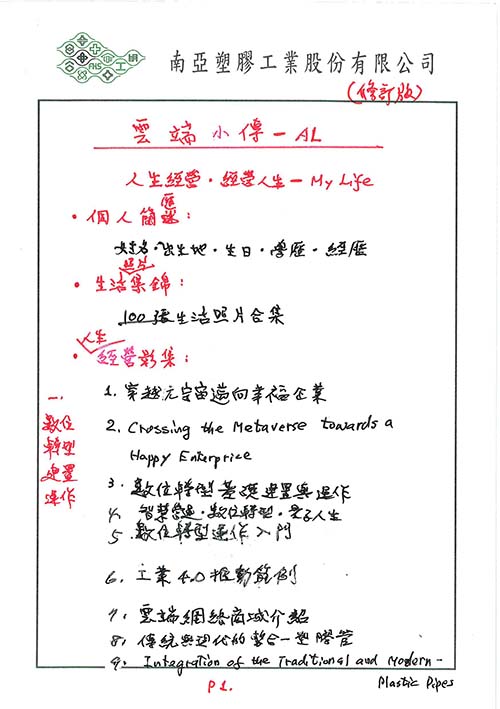 南亞塑膠工業股份有限公司
(修訂版)
雲端小傳－AL
人生經營·經營人生－My Life
·個人簡歷：
姓名·出生地·生日·學歷·經歷
照片
·生活集錦：
100張生活照片合集
人生
·經營影集：
一.
數位
轉型
建置
操作
1. 穿越元宇宙邁向幸福企業
2. Crossing the Metaverse towards a
Happy Enterprise
3. 數位轉型基礎建置與運作
4. 智慧營運·數位轉型·人生
5. 數位轉型運作入門
6. 工業4.0推動範例
7. 雲端網絡商城介紹
8. 傳統與現代的整合－塑膠管
9. Integration of the Traditional and Modern-
Plastic Pipes
P1.